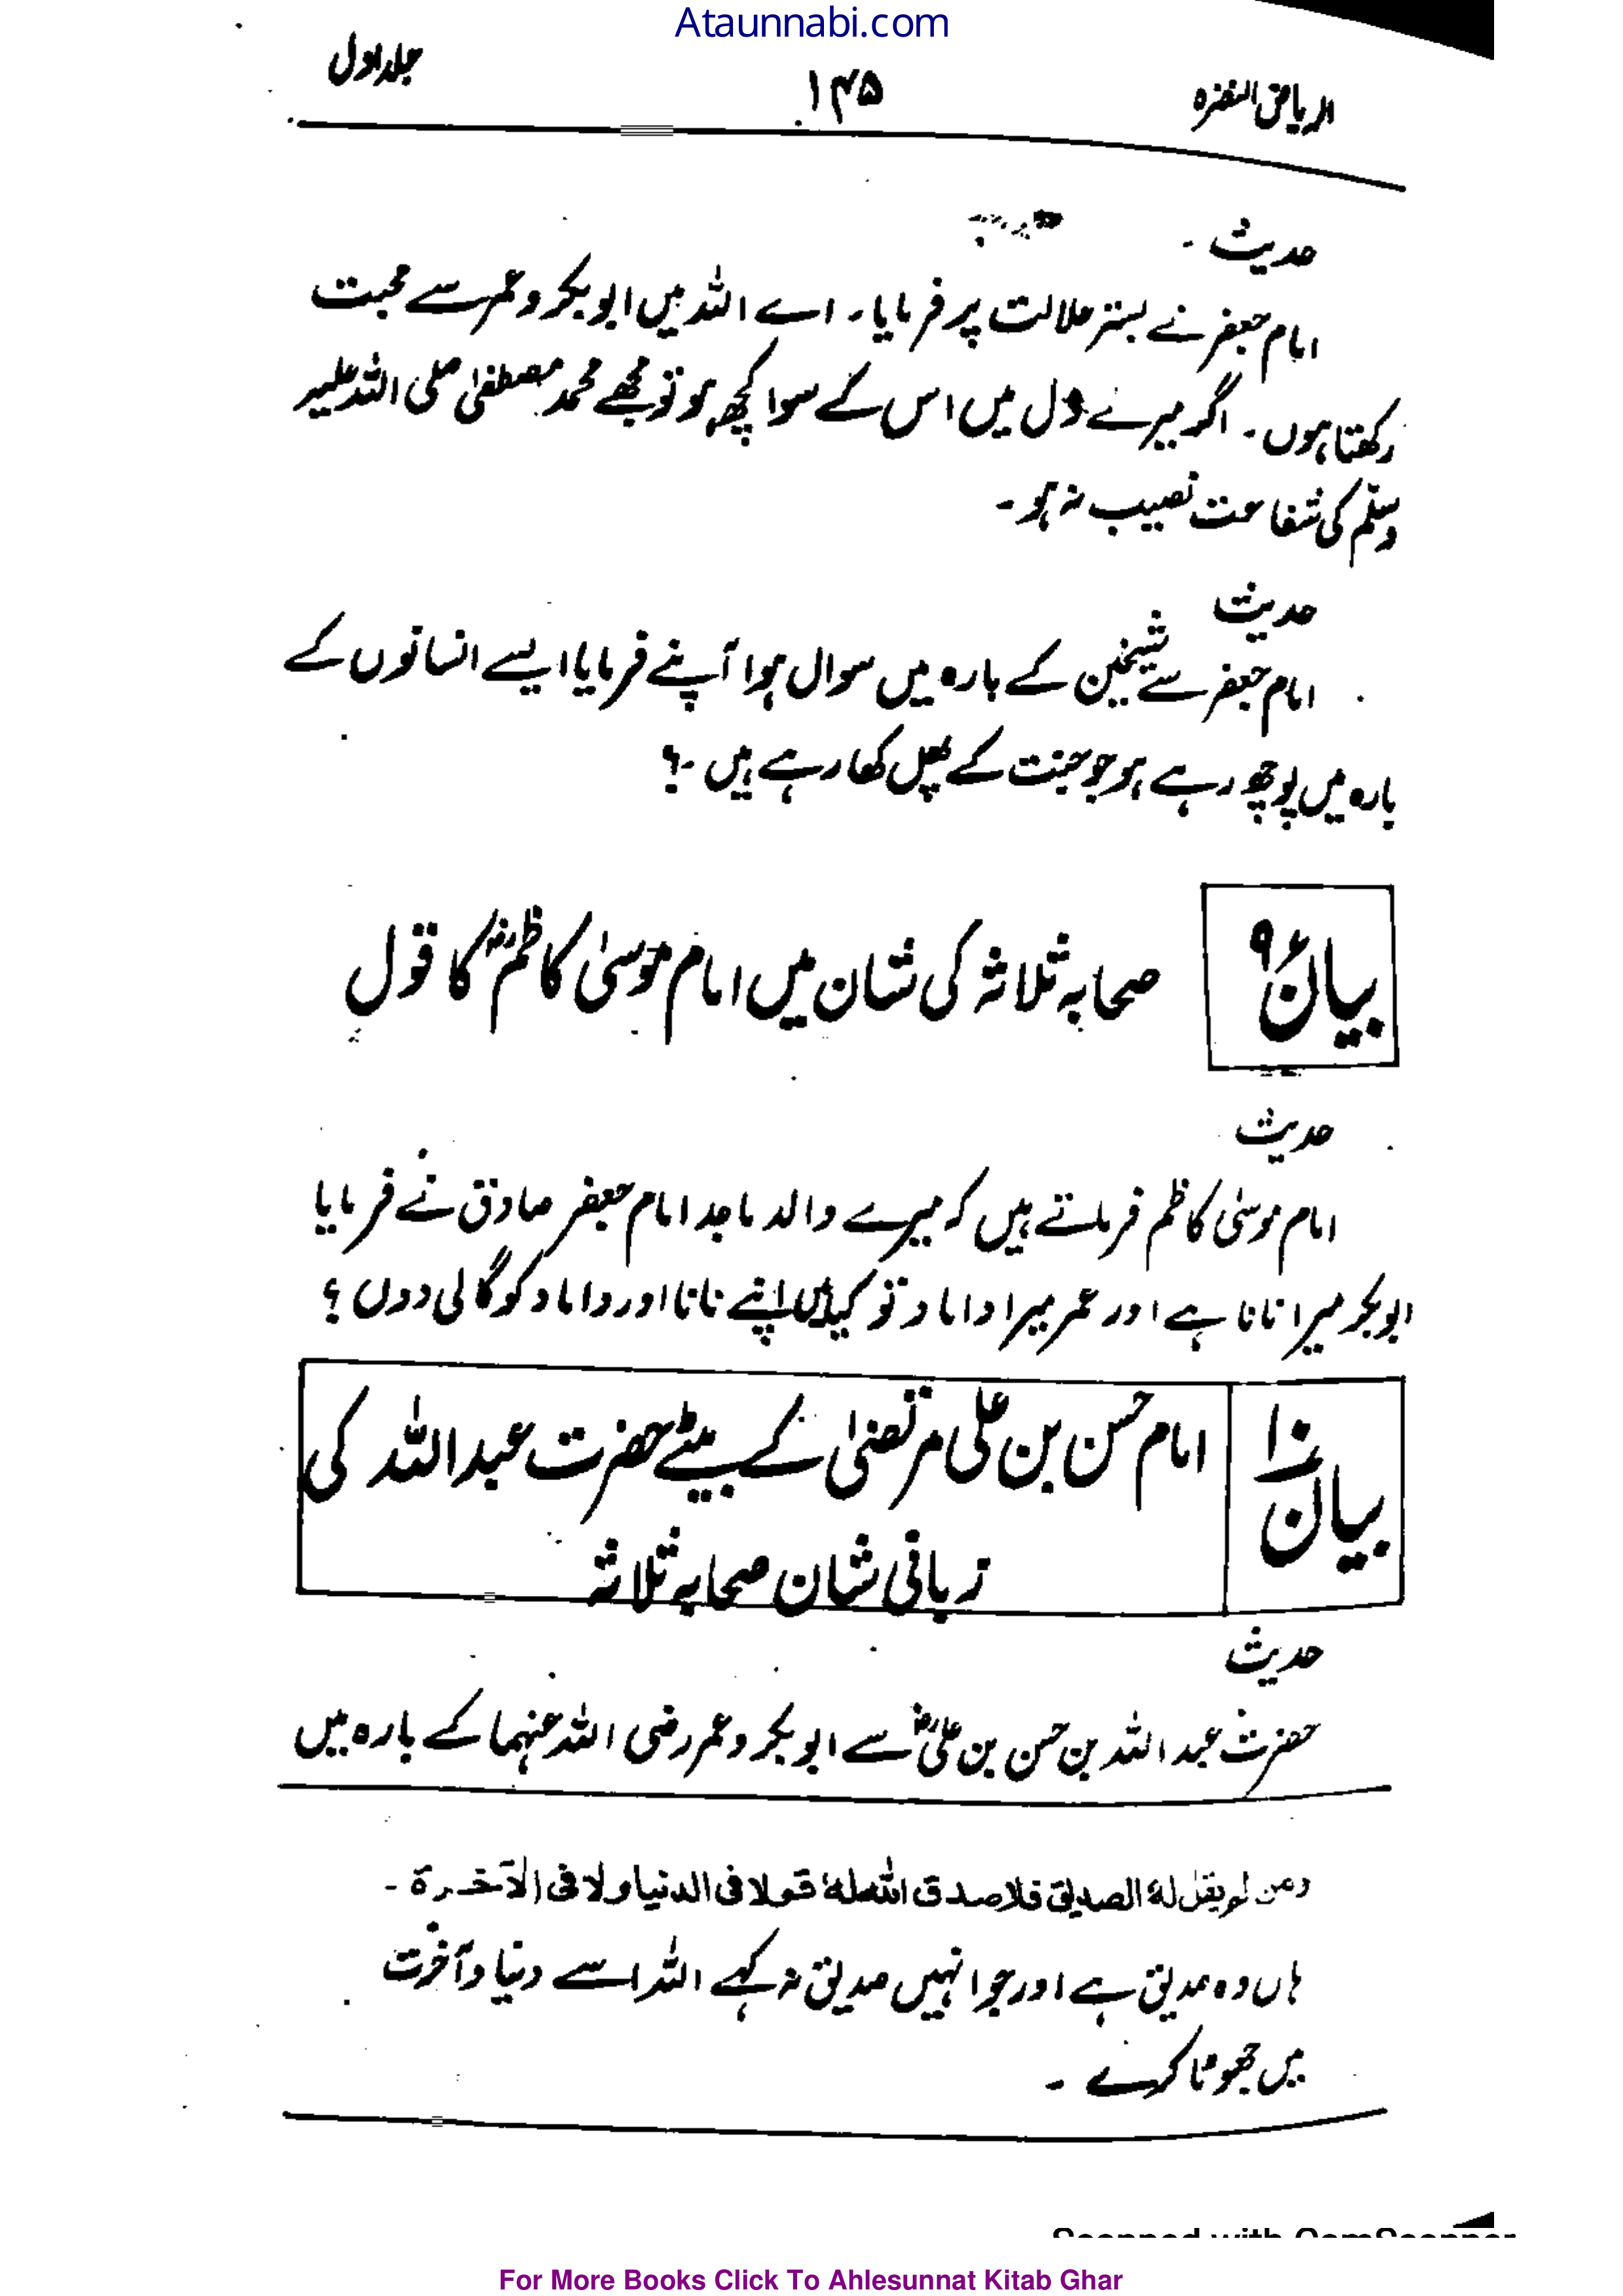 Ataunnabi.com
الریاض النضرہ ۱۴۵ جلد اول
حدیث ۔
امام جعفر نے بستر علالت پر فرمایا۔ اے اللہ میں ابوبکر و عمر سے محبت
رکھتا ہوں۔ اگر میرے دل میں اس کے سوا کچھ ہو تو مجھے محمد مصطفیٰ صلی اللہ علیہ
وسلّم کی شفاعت نصیب نہ ہو۔
حدیث
امام جعفر سے شیخین کے بارہ میں سوال ہوا آپنے فرمایا ایسے انسانوں کے
بارہ میں پوچھ رہے ہو جو جنت کے پھل کھا رہے ہیں ۔؟
بیان ۹ صحابہ ثلاثہ کی شان میں امام موسیٰ کاظمؓ کا قول
حدیث
امام موسیٰ کاظم فرماتے ہیں کہ میرے والد ماجد امام جعفر صادق نے فرمایا
ابوبکر میرا نانا ہے اور عمر میرا داماد تو کیا میں اپنے نانا اور داماد کو گالی دوں ؟
بیان ۱۰ امام حسن بن علی مرتضیٰ کے بیٹے حضرت عبد اللہ کی
زبانی شان صحابہ ثلاثہ
حدیث
حضرت عبد اللہ بن حسن بن علیؓ سے ابوبکر و عمر رضی اللہ عنہما کے بارہ میں
ومن لم یقل لہٗ الصدیق فلا صدق اللہ لہٗ قولا فی الدنیا ولا فی الآخرۃ ۔
ہاں وہ صدیق ہے اور جو انہیں صدیق نہ کہے اللہ اسے دنیا و آخرت
میں جھوٹا کرے ۔
Scanned with CamScanner
For More Books Click To Ahlesunnat Kitab Ghar